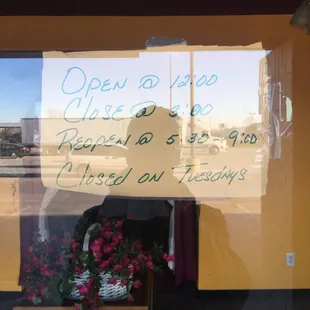 OPEN @ 12:00
CLOSE @ 3:00
REOPEN @ 5:30 - 9:00
CLOSED ON TUESDAYS